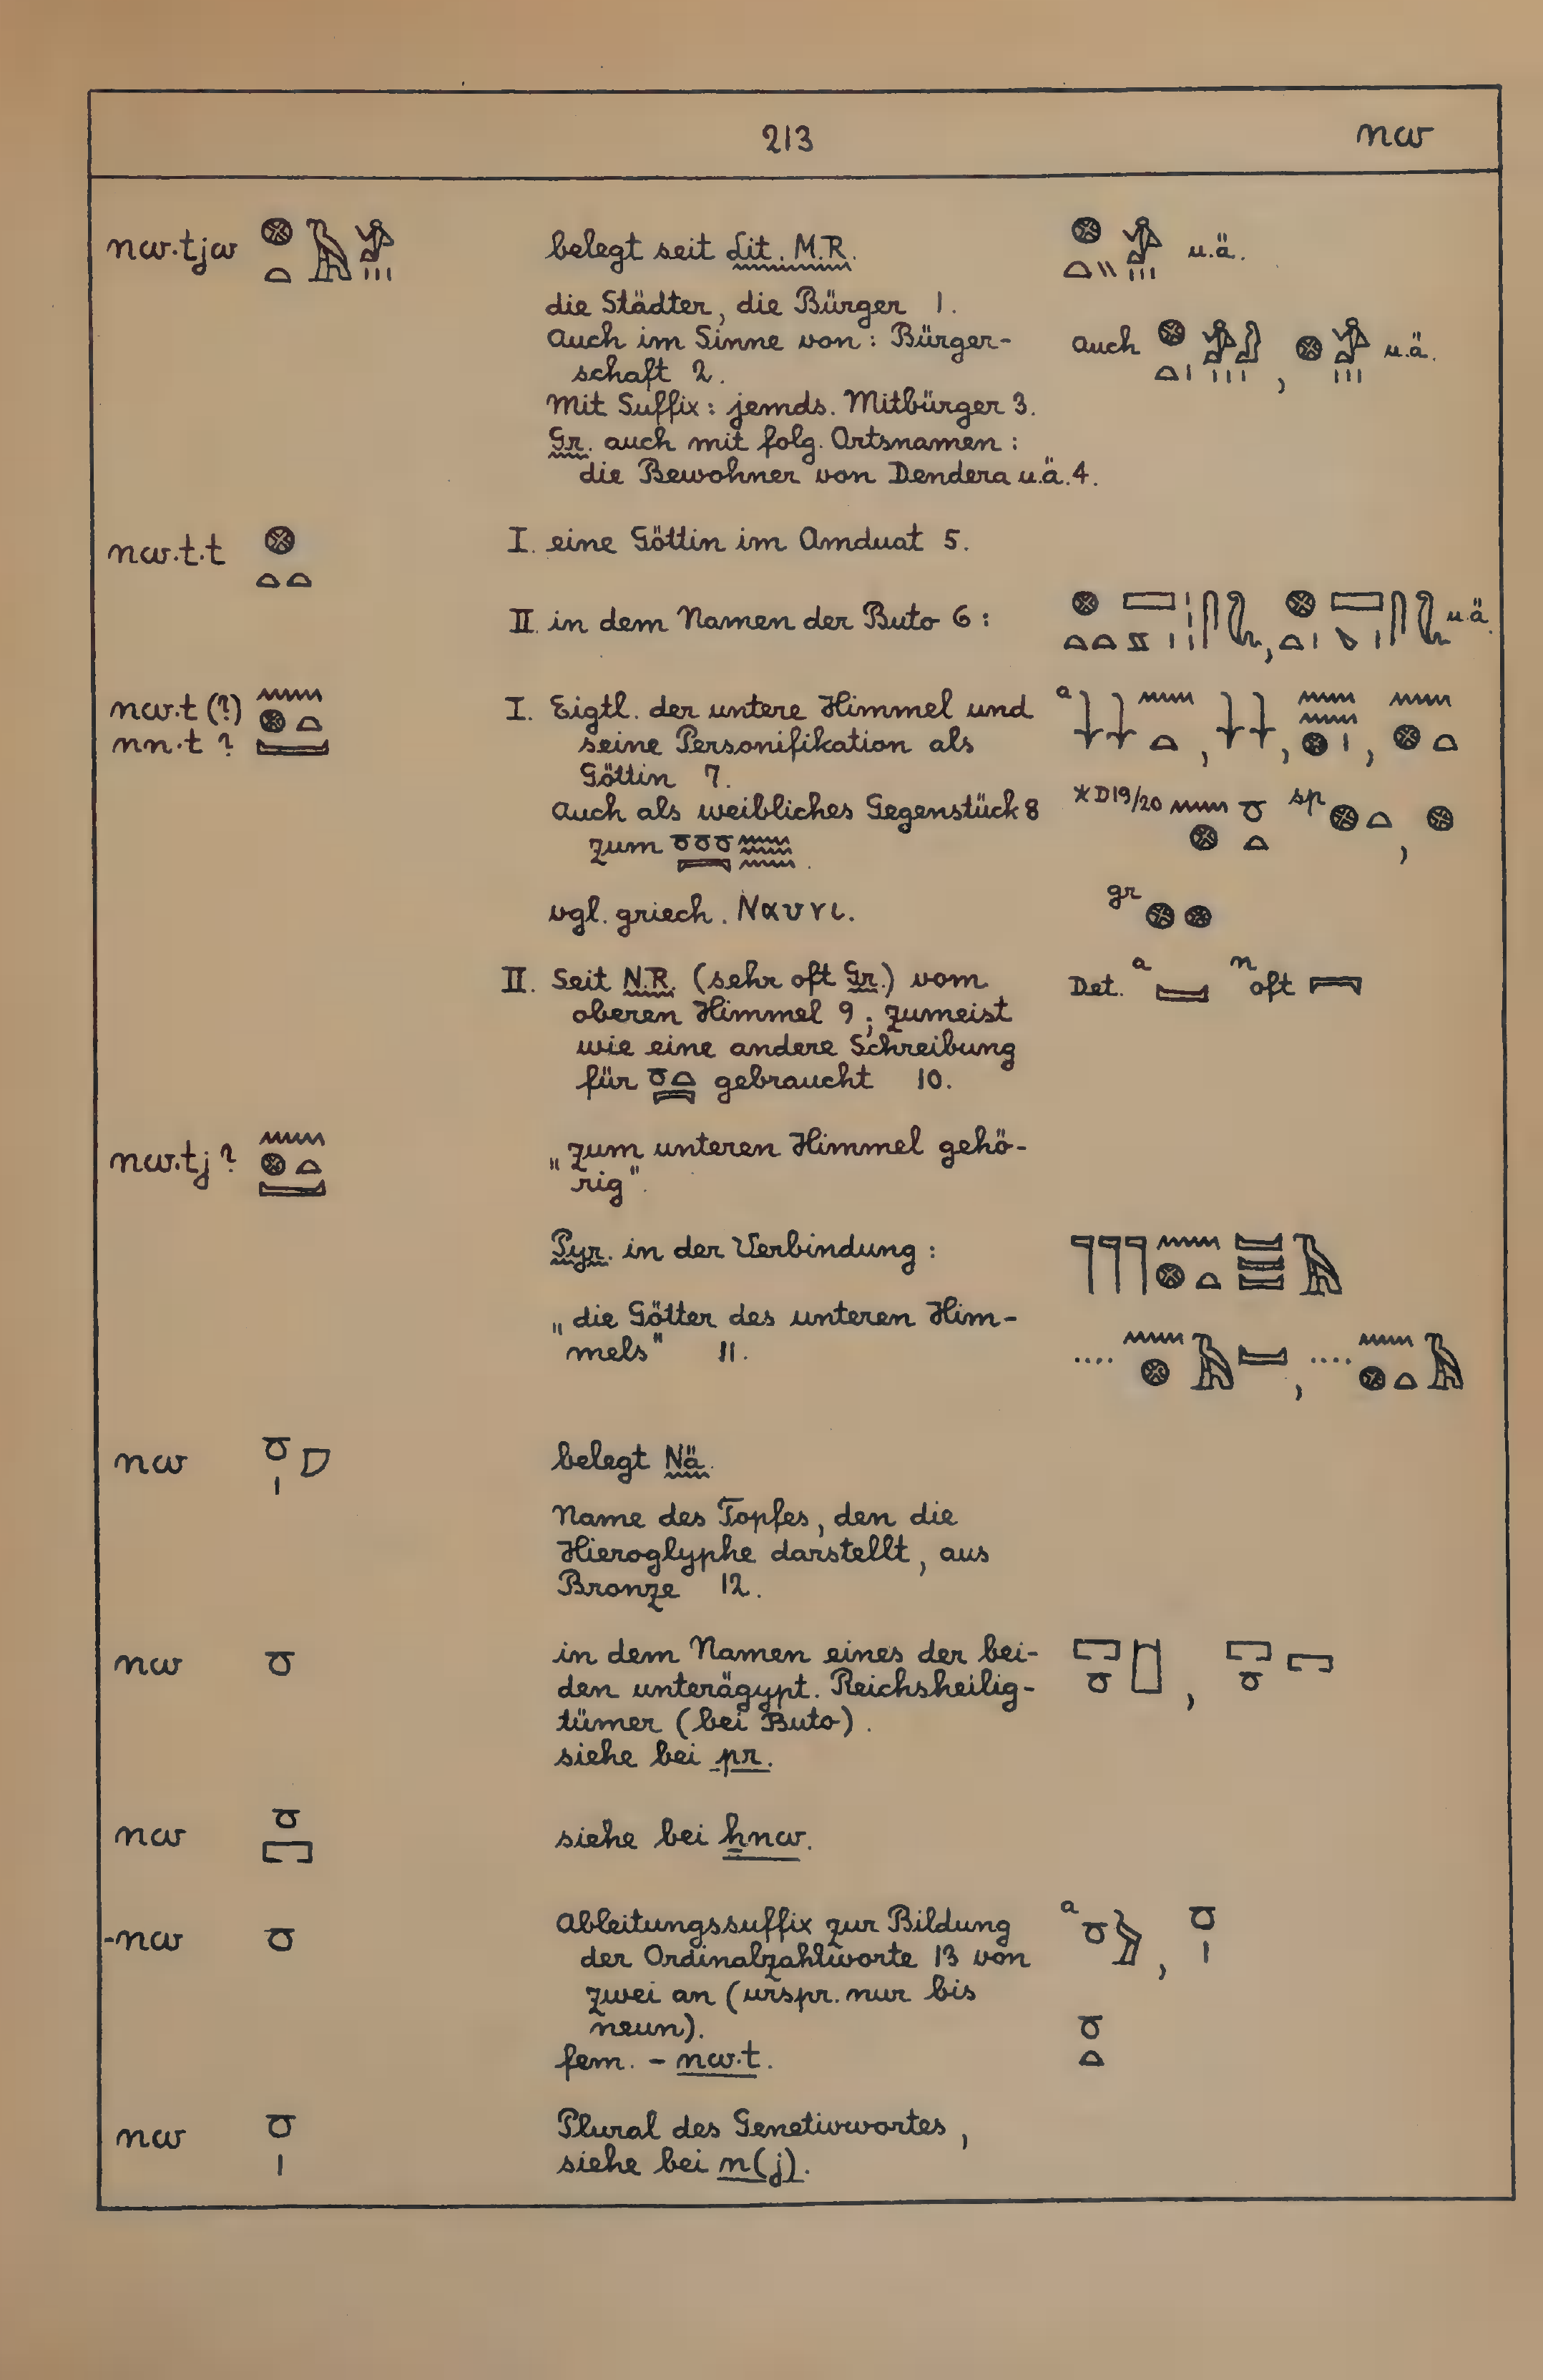 213 nw
nw.tjw belegt seit Lit. M.R. u.ä.
die Städter, die Bürger 1.
Auch im Sinne von: Bürger- auch u.ä.
schaft 2.
Mit Suffix: jemds. Mitbürger 3.
Gr. auch mit folg. Ortsnamen:
die Bewohner von Dendera u.ä. 4.
nw.t.t 𓊖𓏏𓏏 I. eine Göttin im Amduat 5.
II. in dem Namen der Buto 6: u.ä.
nw.t (?) 𓈖𓊖𓏏 I. Eigtl. der untere Himmel und a
nn.t ? seine Personifikation als
Göttin 7.
Auch als weibliches Gegenstück 8 *D19/20 𓈖𓊖𓏌𓏏 sp 𓊖𓏏, 𓊖
zum 𓏌𓏌𓏌𓇯𓈗.
vgl. griech. Ναυνι. gr 𓊖𓊖
II. Seit N.R. (sehr oft Gr.) vom Det. a n oft 𓇯
oberen Himmel 9; zumeist
wie eine andere Schreibung
für 𓏌𓏏𓇯 gebraucht 10.
nw.tj ? 𓈖𓊖𓏏 „zum unteren Himmel gehö-
rig".
Pyr. in der Verbindung:
„die Götter des unteren Him-
mels" 11. .... , ....
nw 𓏌𓏤 belegt Nä.
Name des Topfes, den die
Hieroglyphe darstellt, aus
Bronze 12.
nw 𓏌 in dem Namen eines der bei-
den unterägypt. Reichsheilig-
tümer (bei Buto).
siehe bei pr.
nw 𓏌𓉐 siehe bei ẖnw.
-nw 𓏌 Ableitungssuffix zur Bildung a 𓏌𓅱, 𓏌𓏤
der Ordinalzahlworte 13 von
zwei an (urspr. nur bis
neun). 𓏌𓏏
fem. - nw.t.
nw 𓏌𓏤 Plural des Genetivwortes,
siehe bei n(j).